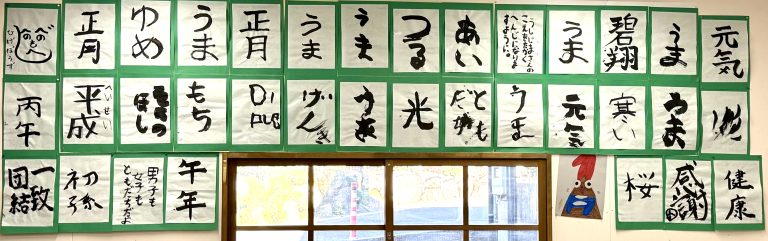 正月
ゆめ
うま
正月
うま
うま
つる
あい
うま
碧翔
うま
元気
丙午
平成
へいせい
ほし
もち
げんき
うま
光
うま
元気
寒い
うま
一致
団結
初孫
男子も
女子も
ともだちだよ
午年
桜
感謝
健康